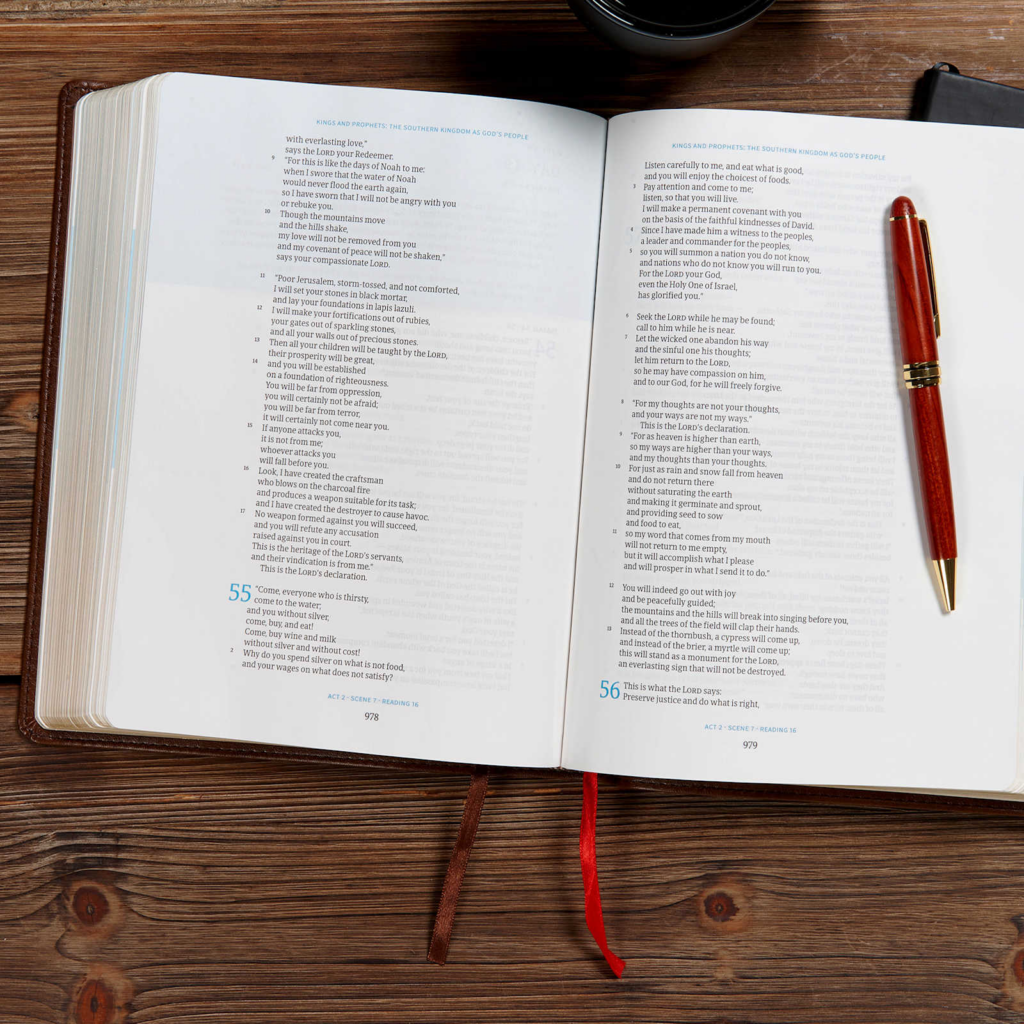 KINGS AND PROPHETS: THE SOUTHERN KINGDOM AS GOD'S PEOPLE
with everlasting love,"
says the LORD your Redeemer.
9 "For this is like the days of Noah to me:
when I swore that the water of Noah
would never flood the earth again,
so I have sworn that I will not be angry with you
or rebuke you.
10 Though the mountains move
and the hills shake,
my love will not be removed from you
and my covenant of peace will not be shaken,"
says your compassionate LORD.
11 "Poor Jerusalem, storm-tossed, and not comforted,
I will set your stones in black mortar,
and lay your foundations in lapis lazuli.
12 I will make your fortifications out of rubies,
your gates out of sparkling stones,
and all your walls out of precious stones.
13 Then all your children will be taught by the LORD,
their prosperity will be great,
14 and you will be established
on a foundation of righteousness.
You will be far from oppression,
you will certainly not be afraid;
you will be far from terror,
it will certainly not come near you.
15 If anyone attacks you,
it is not from me;
whoever attacks you
will fall before you.
16 Look, I have created the craftsman
who blows on the charcoal fire
and produces a weapon suitable for its task;
and I have created the destroyer to cause havoc.
17 No weapon formed against you will succeed,
and you will refute any accusation
raised against you in court.
This is the heritage of the LORD's servants,
and their vindication is from me."
This is the LORD's declaration.
55 "Come, everyone who is thirsty,
come to the water;
and you without silver,
come, buy, and eat!
Come, buy wine and milk
without silver and without cost!
2 Why do you spend silver on what is not food,
and your wages on what does not satisfy?
ACT 2 • SCENE 7 • READING 16
978
KINGS AND PROPHETS: THE SOUTHERN KINGDOM AS GOD'S PEOPLE
Listen carefully to me, and eat what is good,
and you will enjoy the choicest of foods.
3 Pay attention and come to me;
listen, so that you will live.
I will make a permanent covenant with you
on the basis of the faithful kindnesses of David.
4 Since I have made him a witness to the peoples,
a leader and commander for the peoples,
5 so you will summon a nation you do not know,
and nations who do not know you will run to you.
For the LORD your God,
even the Holy One of Israel,
has glorified you."
6 Seek the LORD while he may be found;
call to him while he is near.
7 Let the wicked one abandon his way
and the sinful one his thoughts;
let him return to the LORD,
so he may have compassion on him,
and to our God, for he will freely forgive.
8 "For my thoughts are not your thoughts,
and your ways are not my ways."
This is the LORD's declaration.
9 "For as heaven is higher than earth,
so my ways are higher than your ways,
and my thoughts than your thoughts.
10 For just as rain and snow fall from heaven
and do not return there
without saturating the earth
and making it germinate and sprout,
and providing seed to sow
and food to eat,
11 so my word that comes from my mouth
will not return to me empty,
but it will accomplish what I please
and will prosper in what I send it to do."
12 You will indeed go out with joy
and be peacefully guided;
the mountains and the hills will break into singing before you,
and all the trees of the field will clap their hands.
13 Instead of the thornbush, a cypress will come up,
and instead of the brier, a myrtle will come up;
this will stand as a monument for the LORD,
an everlasting sign that will not be destroyed.
56 This is what the LORD says:
Preserve justice and do what is right,
ACT 2 • SCENE 7 • READING 16
979